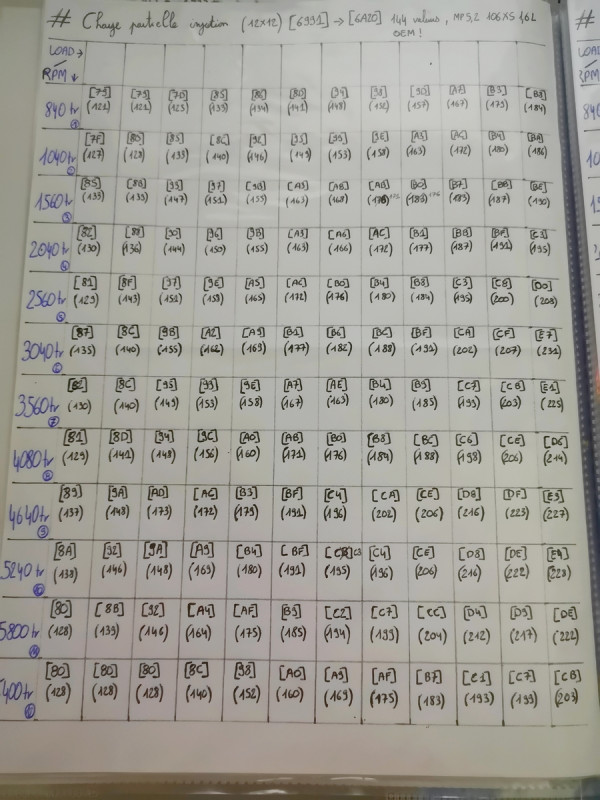 # Charge partielle injection (12x12) [6991] → [6A20] 144 values, MP5,2 106XS 1,6L
OEM!
LOAD →
RPM ↓
840tr [79] [79] [7D] [85] [86] [8D] [94] [98] [9D] [A7] [B3] [B8]
① (121) (121) (125) (133) (134) (141) (148) (152) (157) (167) (179) (184)
1040tr [7F] [80] [85] [8C] [92] [95] [99] [9E] [A3] [AC] [B4] [BA]
② (127) (128) (133) (140) (146) (149) (153) (158) (163) (172) (180) (186)
1560tr [85] [8B] [93] [97] [9B] [A3] [A8] [B0] [B7] [BB] [BE]
③ (133) (139) (147) (151) (155) (163) (168) (183) (187) (190)
2040tr [82] [88] [90] [96] [9B] [A3] [A6] [AC] [B1] [BB] [BF] [C3]
④ (130) (136) (144) (150) (155) (163) (166) (172) (177) (187) (191) (195)
2560tr [81] [8F] [97] [9E] [A5] [AC] [B0] [B4] [B8] [C3] [C8] [D0]
⑤ (129) (143) (151) (158) (165) (172) (176) (180) (184) (195) (200) (208)
3040tr [87] [8C] [9B] [A2] [A9] [B1] [B6] [BC] [BF] [CA] [CF] [E7]
⑥ (135) (140) (155) (162) (169) (177) (182) (188) (191) (202) (207) (231)
3560tr [82] [8C] [95] [99] [9E] [A7] [AE] [B4] [B9] [C7] [CB] [E1]
⑦ (130) (140) (149) (153) (158) (167) (169) (180) (185) (199) (203) (225)
4080tr [81] [8D] [94] [9C] [A0] [AB] [B0] [B8] [BC] [C6] [CE] [D6]
⑧ (129) (141) (148) (156) (160) (171) (176) (184) (188) (198) (206) (214)
4640tr [89] [9A] [AD] [AC] [B3] [BF] [C4] [CA] [CE] [D8] [DF] [E3]
⑨ (137) (148) (173) (172) (179) (191) (196) (202) (206) (216) (223) (227)
5240tr [8A] [92] [9A] [A9] [B4] [BF] [C3] [C4] [CE] [D8] [DE] [E4]
⑩ (138) (146) (148) (169) (180) (191) (195) (196) (206) (216) (222) (228)
5800tr [80] [8B] [92] [A4] [AF] [B9] [C2] [C7] [CC] [D4] [D9] [DE]
⑪ (128) (139) (146) (164) (175) (185) (194) (199) (204) (212) (217) (222)
400tr [80] [80] [80] [8C] [98] [A0] [A9] [AF] [B7] [C1] [C7] [CB]
⑫ (128) (128) (128) (140) (152) (160) (169) (175) (183) (193) (199) (203)